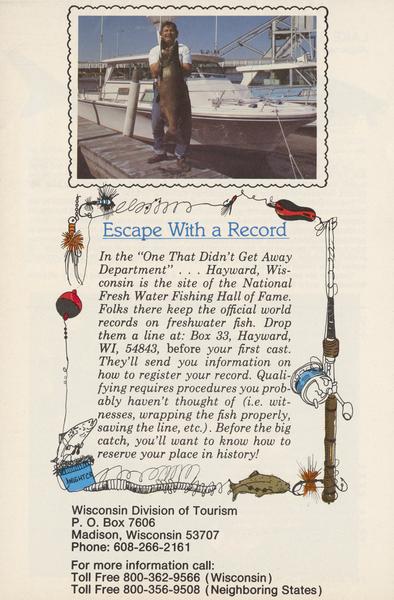 Escape With a Record
In the "One That Didn't Get Away
Department" . . . Hayward, Wis-
consin is the site of the National
Fresh Water Fishing Hall of Fame.
Folks there keep the official world
records on freshwater fish. Drop
them a line at: Box 33, Hayward,
WI, 54843, before your first cast.
They'll send you information on
how to register your record. Quali-
fying requires procedures you prob-
ably haven't thought of (i.e. wit-
nesses, wrapping the fish properly,
saving the line, etc.). Before the big
catch, you'll want to know how to
reserve your place in history!
Wisconsin Division of Tourism
P. O. Box 7606
Madison, Wisconsin 53707
Phone: 608-266-2161
For more information call:
Toll Free 800-362-9566 (Wisconsin)
Toll Free 800-356-9508 (Neighboring States)